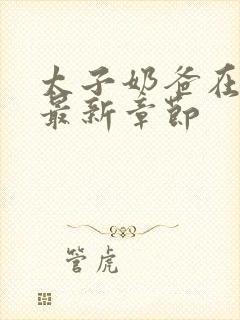 太子奶爸在
最新章节
管虎